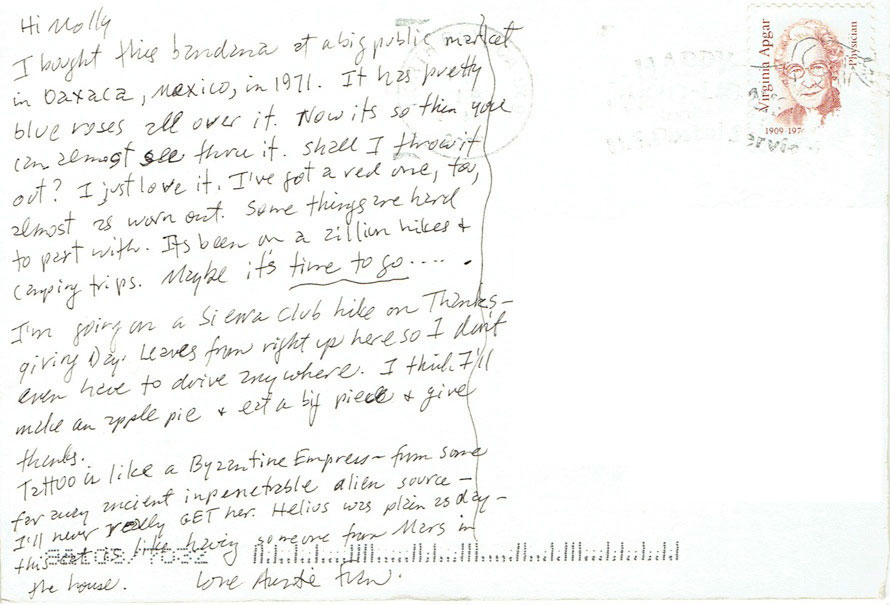 Hi Molly
I bought this bandana at a big public market
in Oaxaca, Mexico, in 1971. It has pretty
blue roses all over it. Now its so thin you
can almost see thru it. Shall I throw it
out? I just love it. I've got a red one, too,
almost as worn out. Some things are hard
to part with. Its been on a zillion hikes &
camping trips. Maybe it's time to go.....
I'm going on a Sierra Club hike on Thanks-
giving Day. Leaves from right up here so I don't
even have to drive anywhere. I think I'll
make an apple pie & eat a big piece & give
thanks.
Tattoo is like a Byzantine Empress - from some
far away ancient inpenetrable alien source -
I'll never really GET her. Helius was plain as day -
this cat is like having someone from Mars in
the house. Love Auntie
Virginia Apgar
Physician
1909-197